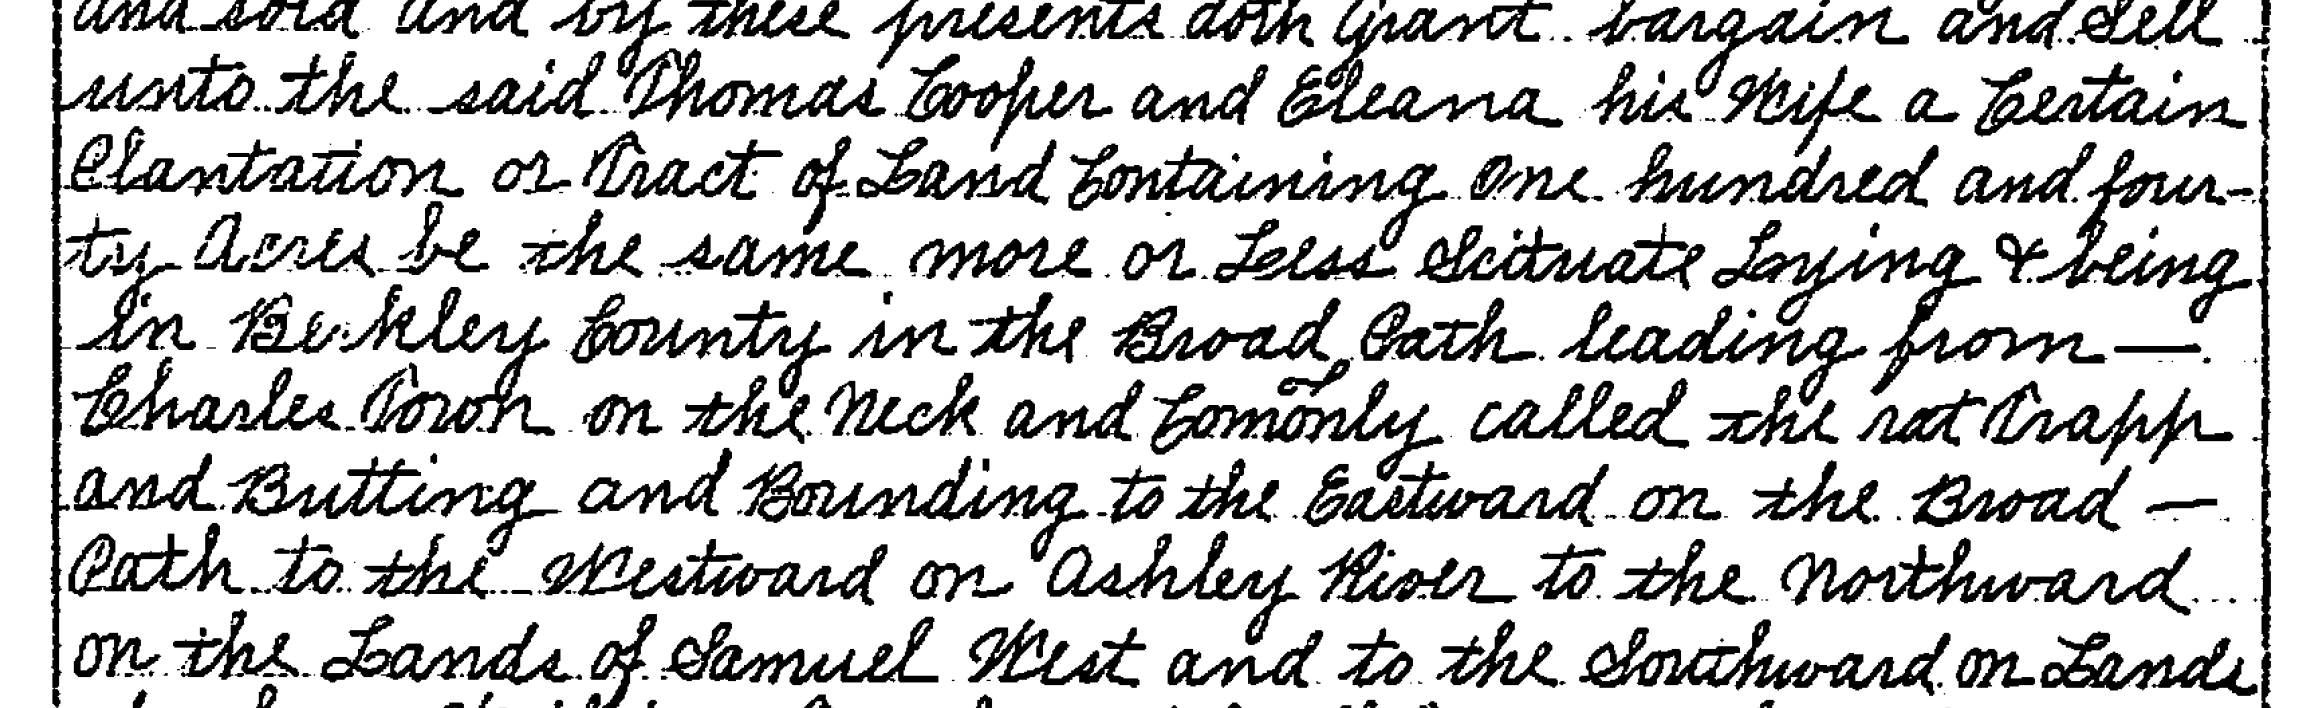 and sold and by these presents doth Grant bargain and Sell
unto the said Thomas Cooper and Eleana his Wife a Certain
Plantation or Tract of Land Containing One hundred and four-
ty Acres be the same more or Less Scituate Laying & being
in Berkley County in the Broad Path leading from —
Charles Town on the Neck and Comonly called the rat Trapp
and Butting and Bounding to the Eastward on the Broad —
Path to the Westward on Ashley River to the Northward
on the Lands of Samuel West and to the Southward on Lands